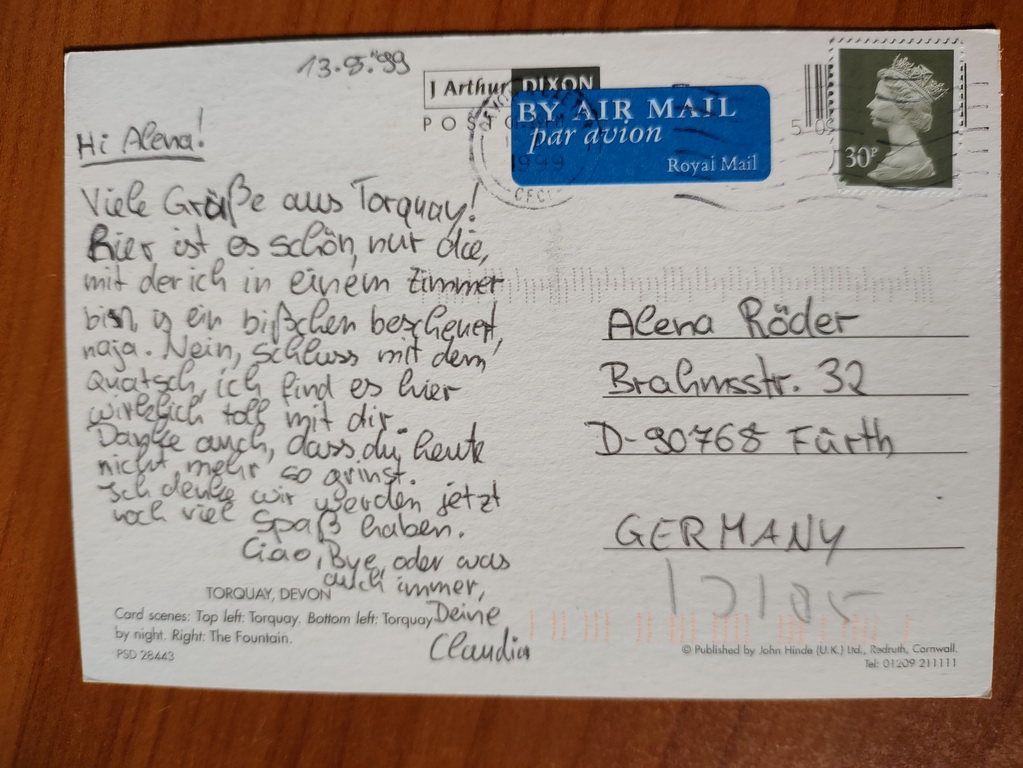 13.8.'99
J Arthur DIXON
BY AIR MAIL
par avion
Royal Mail
1999
30P
Hi Alena!
Viele Grüße aus Torquay!
Hier ist es schön, nur die,
mit der ich in einem Zimmer
bin, is ein bißchen bescheuert,
naja. Nein, Schluss mit dem
Quatsch, ich find es hier
wirklich toll mit dir.
Danke auch, dass du heute
nicht mehr so grinst.
Ich denke wir werden jetzt
noch viel Spaß haben.
Ciao, Bye, oder was
auch immer,
Deine
Claudia
Alena Röder
Brahmsstr. 32
D-90768 Fürth
GERMANY
TORQUAY, DEVON
Card scenes: Top left: Torquay. Bottom left: Torquay
by night. Right: The Fountain.
PSD 28443
© Published by John Hinde (U.K.) Ltd., Redruth, Cornwall.
Tel: 01209 211111